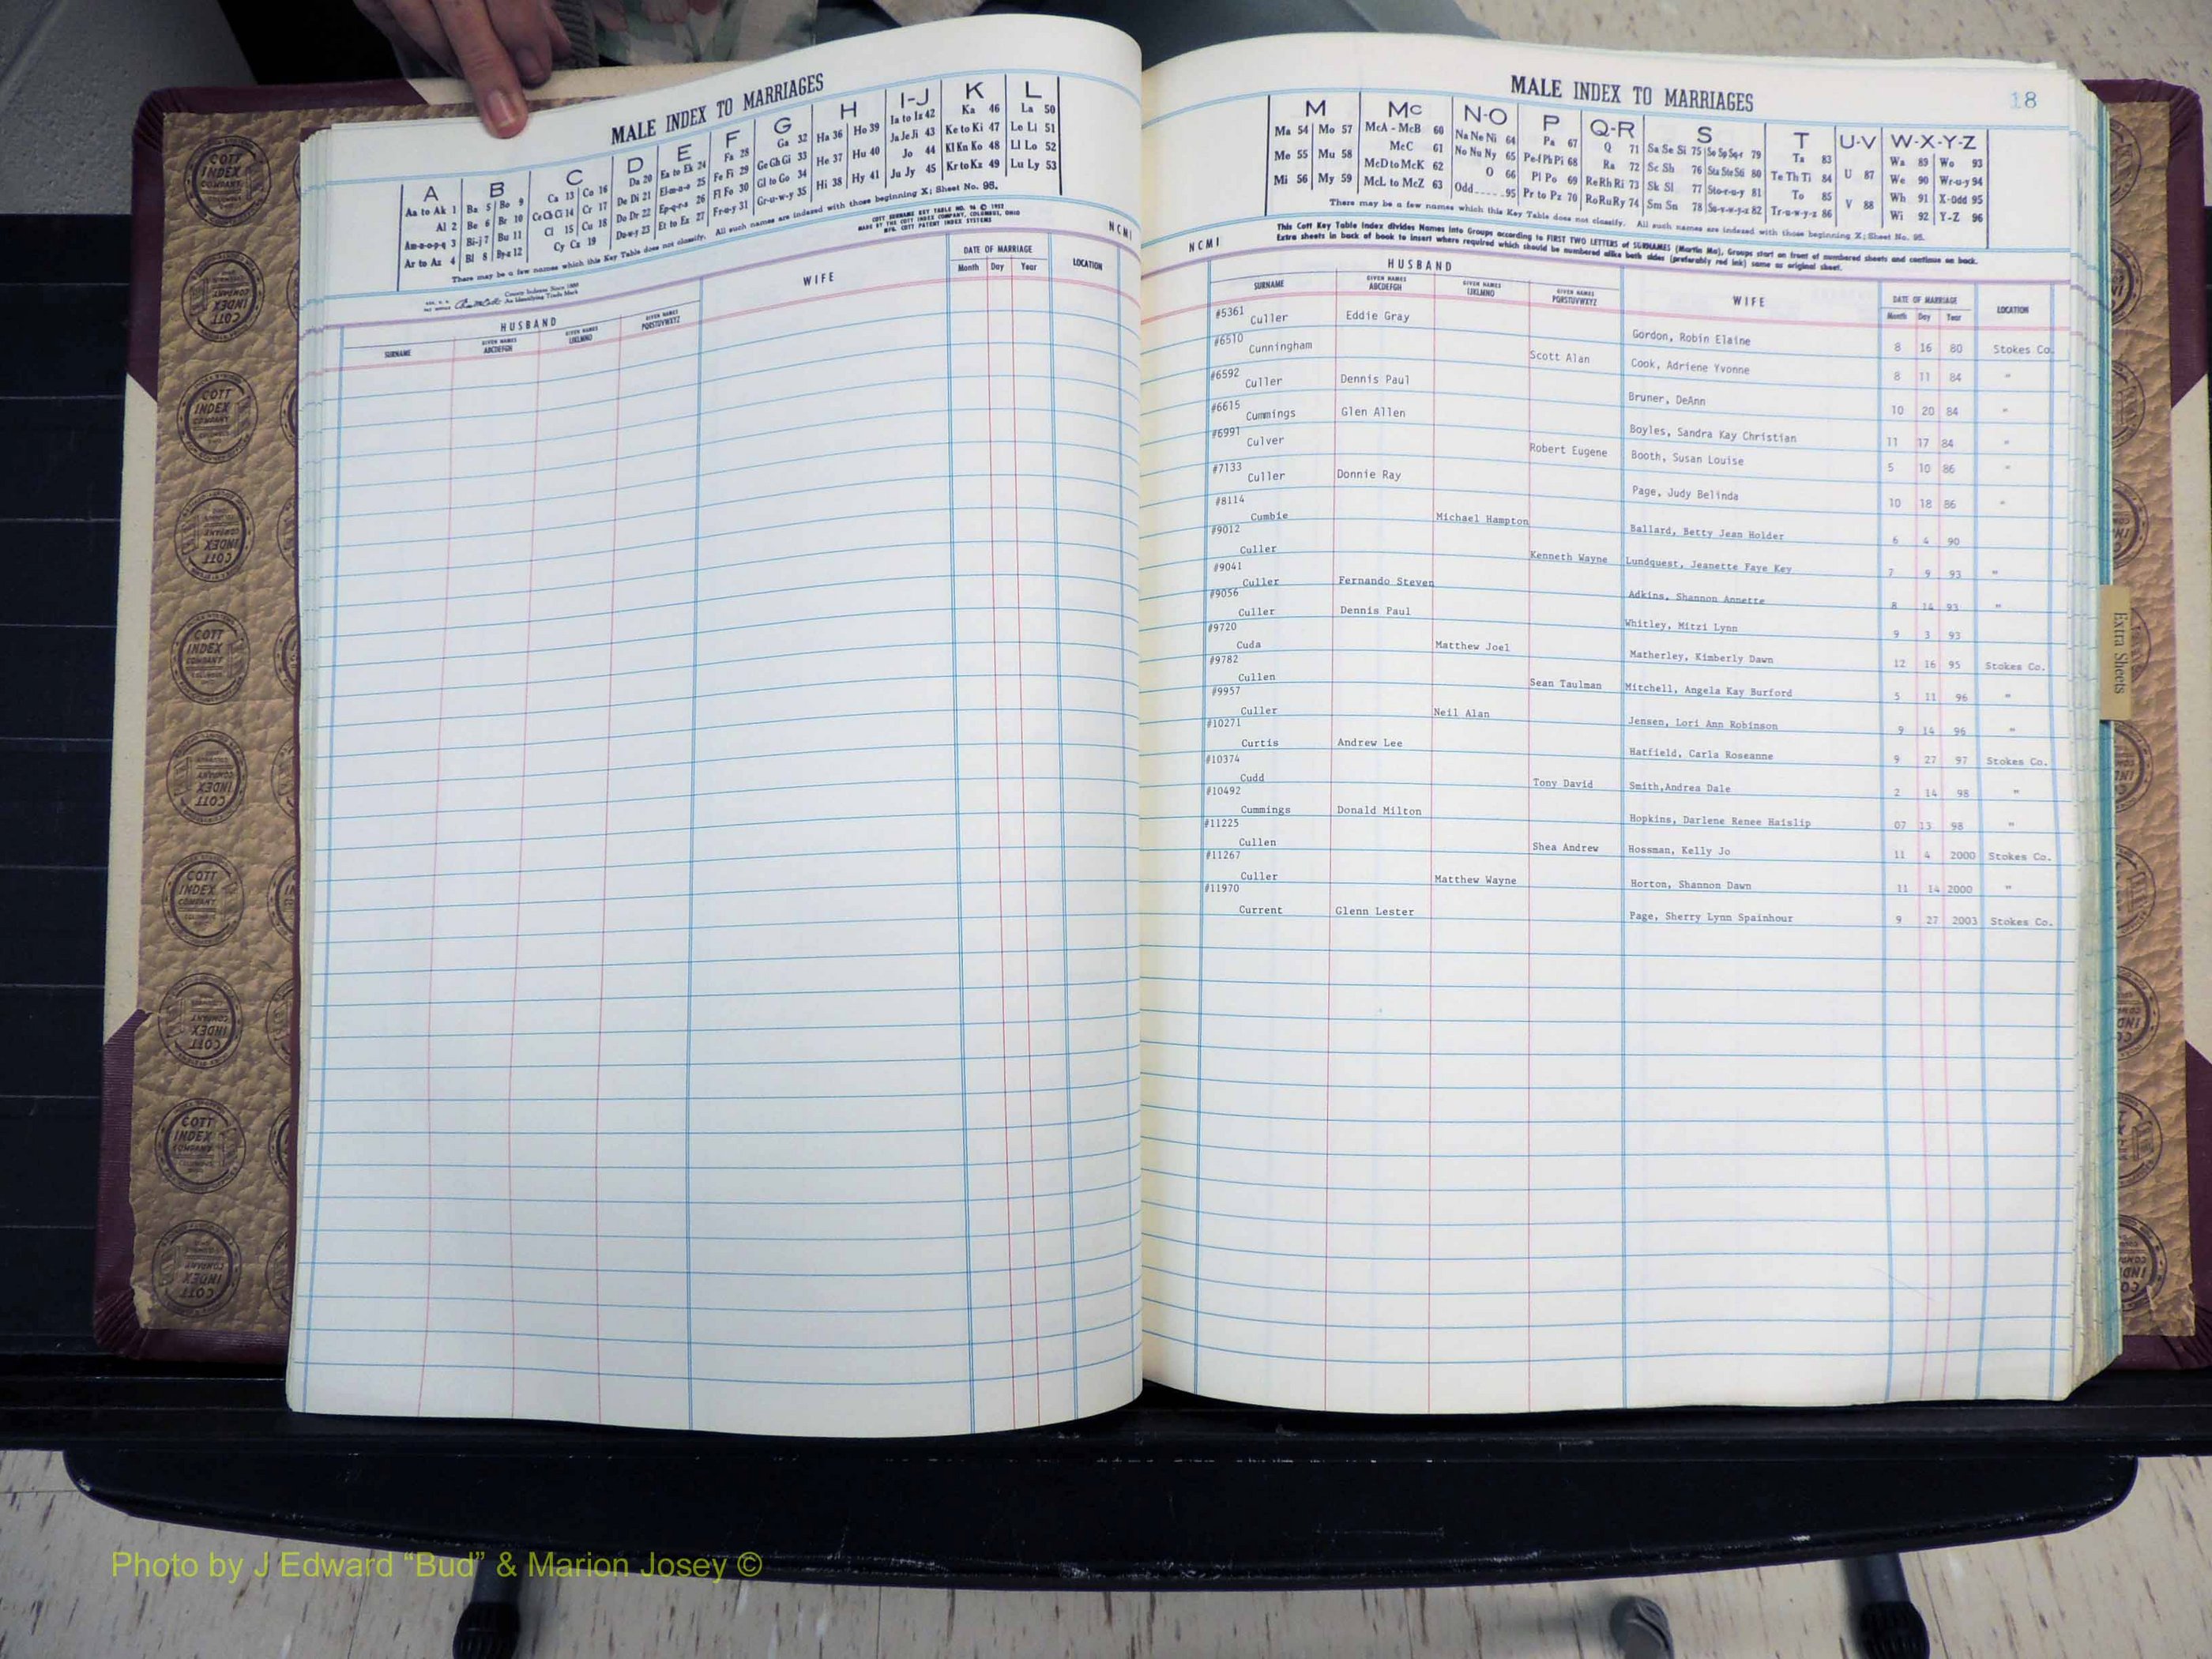 MALE INDEX TO MARRIAGES
A B C D E F G H I-J K L
Aa to Ak 1 Ba 5 Bo 9 Ca 13 Co 16 Da 20 Ea to Ek 24 Fa 28 Ga 32 Ha 36 Ho 39 Ia to Iz 42 Ka 46 La 50
Al 2 Be 6 Br 10 Ce Ch Ci 14 Cr 17 De Di 21 El-m-n-o 25 Fe Fi 29 Ge Gh Gi 33 He 37 Hu 40 Ja Je Ji 43 Ke to Ki 47 Le Li 51
Am-n-o-p-q 3 Bi-j 7 Bu 11 Cl 15 Cu 18 Do Dr 22 Ep-q-r-s 26 Fl Fo 30 Gl to Go 34 Hi 38 Hy 41 Jo 44 Kl Kn Ko 48 Ll Lo 52
Ar to Az 4 Bl 8 By-z 12 Cy Cz 19 Du-w-y 23 Et to Ez 27 Fr-u-y 31 Gr-u-w-y 35 Ju Jy 45 Kr to Kz 49 Lu Ly 53
There may be a few names which this Key Table does not classify. All such names are indexed with those beginning X; Sheet No. 95.
COTT SURNAME KEY TABLE NO. 96 © 1952
MADE BY THE COTT INDEX COMPANY, COLUMBUS, OHIO
MFG. COTT PATENT INDEX SYSTEMS
County Indexes Since 1888
An Identifying Trade Mark
NCMI
HUSBAND WIFE DATE OF MARRIAGE LOCATION
SURNAME GIVEN NAMES ABCDEFGH GIVEN NAMES IJKLMNO GIVEN NAMES PQRSTUVWXYZ Month Day Year
MALE INDEX TO MARRIAGES
18
M Mc N-O P Q-R S T U-V W-X-Y-Z
Ma 54 Mo 57 McA - McB 60 Na Ne Ni 64 Pa 67 Q 71 Sa Se Si 75 So Sp Sq-r 79 Ta 83 U 87 Wa 89 Wo 93
Me 55 Mu 58 McC 61 No Nu Ny 65 Pe-f Ph Pi 68 Ra 72 Sc Sh 76 Sta Ste Sti 80 Te Th Ti 84 We 90 Wr-u-y 94
Mi 56 My 59 McD to McK 62 O 66 Pl Po 69 Re Rh Ri 73 Sk Sl 77 Sto-r-u-y 81 To 85 V 88 Wh 91 X-Odd 95
McL to McZ 63 Odd 95 Pr to Pz 70 Ro Ru Ry 74 Sm Sn 78 Su-v-w-y-z 82 Tr-u-w-y-z 86 Wi 92 Y-Z 96
There may be a few names which this Key Table does not classify. All such names are indexed with those beginning X; Sheet No. 95.
This Cott Key Table Index divides Names into Groups according to FIRST TWO LETTERS of SURNAMES (Martin Ma), Groups start on front of numbered sheets and continue on back.
Extra sheets in back of book to insert where required which should be numbered alike both sides (preferably red ink) same as original sheet.
NCMI
HUSBAND WIFE DATE OF MARRIAGE LOCATION
SURNAME GIVEN NAMES ABCDEFGH GIVEN NAMES IJKLMNO GIVEN NAMES PQRSTUVWXYZ Month Day Year
#5361 Culler Eddie Gray Gordon, Robin Elaine 8 16 80 Stokes Co.
#6510 Cunningham Scott Alan Cook, Adriene Yvonne 8 11 84 "
#6592 Culler Dennis Paul Bruner, DeAnn 10 20 84 "
#6615 Cummings Glen Allen Boyles, Sandra Kay Christian 11 17 84 "
#6991 Culver Robert Eugene Booth, Susan Louise 5 10 86 "
#7133 Culler Donnie Ray Page, Judy Belinda 10 18 86 "
#8114 Cumbie Michael Hampton Ballard, Betty Jean Holder 6 4 90
#9012 Culler Kenneth Wayne Lundquest, Jeanette Faye Key 7 9 93 "
#9041 Culler Fernando Steven Adkins, Shannon Annette 8 14 93 "
#9056 Culler Dennis Paul Whitley, Mitzi Lynn 9 3 93
#9720 Cuda Matthew Joel Matherley, Kimberly Dawn 12 16 95 Stokes Co.
#9782 Cullen Sean Taulman Mitchell, Angela Kay Burford 5 11 96 "
#9957 Culler Neil Alan Jensen, Lori Ann Robinson 9 14 96 "
#10271 Curtis Andrew Lee Hatfield, Carla Roseanne 9 27 97 Stokes Co.
#10374 Cudd Tony David Smith,Andrea Dale 2 14 98 "
#10492 Cummings Donald Milton Hopkins, Darlene Renee Haislip 07 13 98 "
#11225 Cullen Shea Andrew Hossman, Kelly Jo 11 4 2000 Stokes Co.
#11267 Culler Matthew Wayne Horton, Shannon Dawn 11 14 2000 "
#11970 Current Glenn Lester Page, Sherry Lynn Spainhour 9 27 2003 Stokes Co.
Extra Sheets
COTT INDEX COMPANY
Photo by J Edward “Bud” & Marion Josey ©